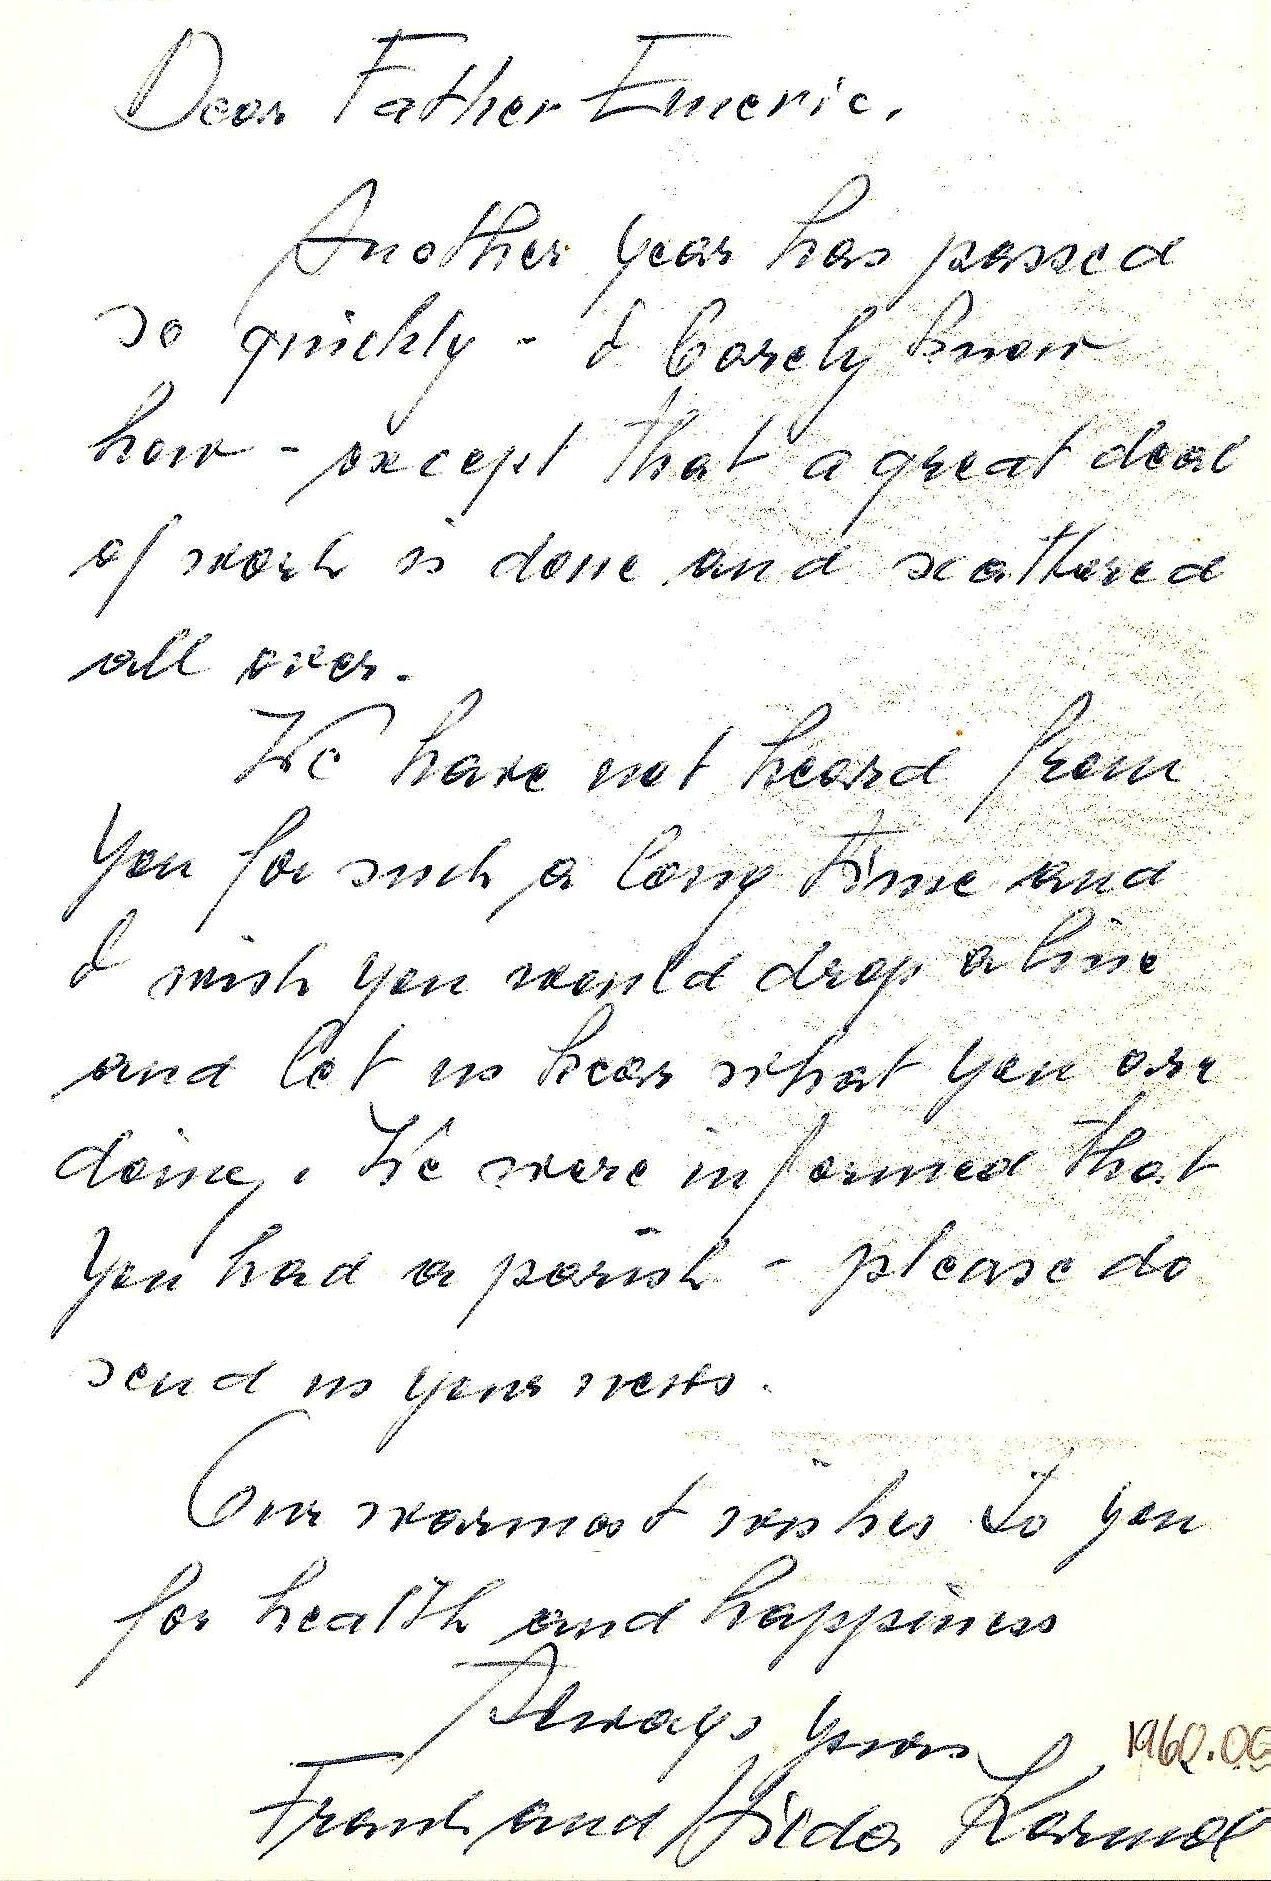 Dear Father Emeric.
Another year has passed
so quickly - I barely know
how - except that a great deal
of work is done and scattered
all over.
We have not heard from
you for such a long time and
I wish you would drop a line
and let us hear what you are
doing. We were informed that
you had a parish - please do
send us your news.
Our warmest wishes to you
for health and happiness
Always yours
Frank and Hilda